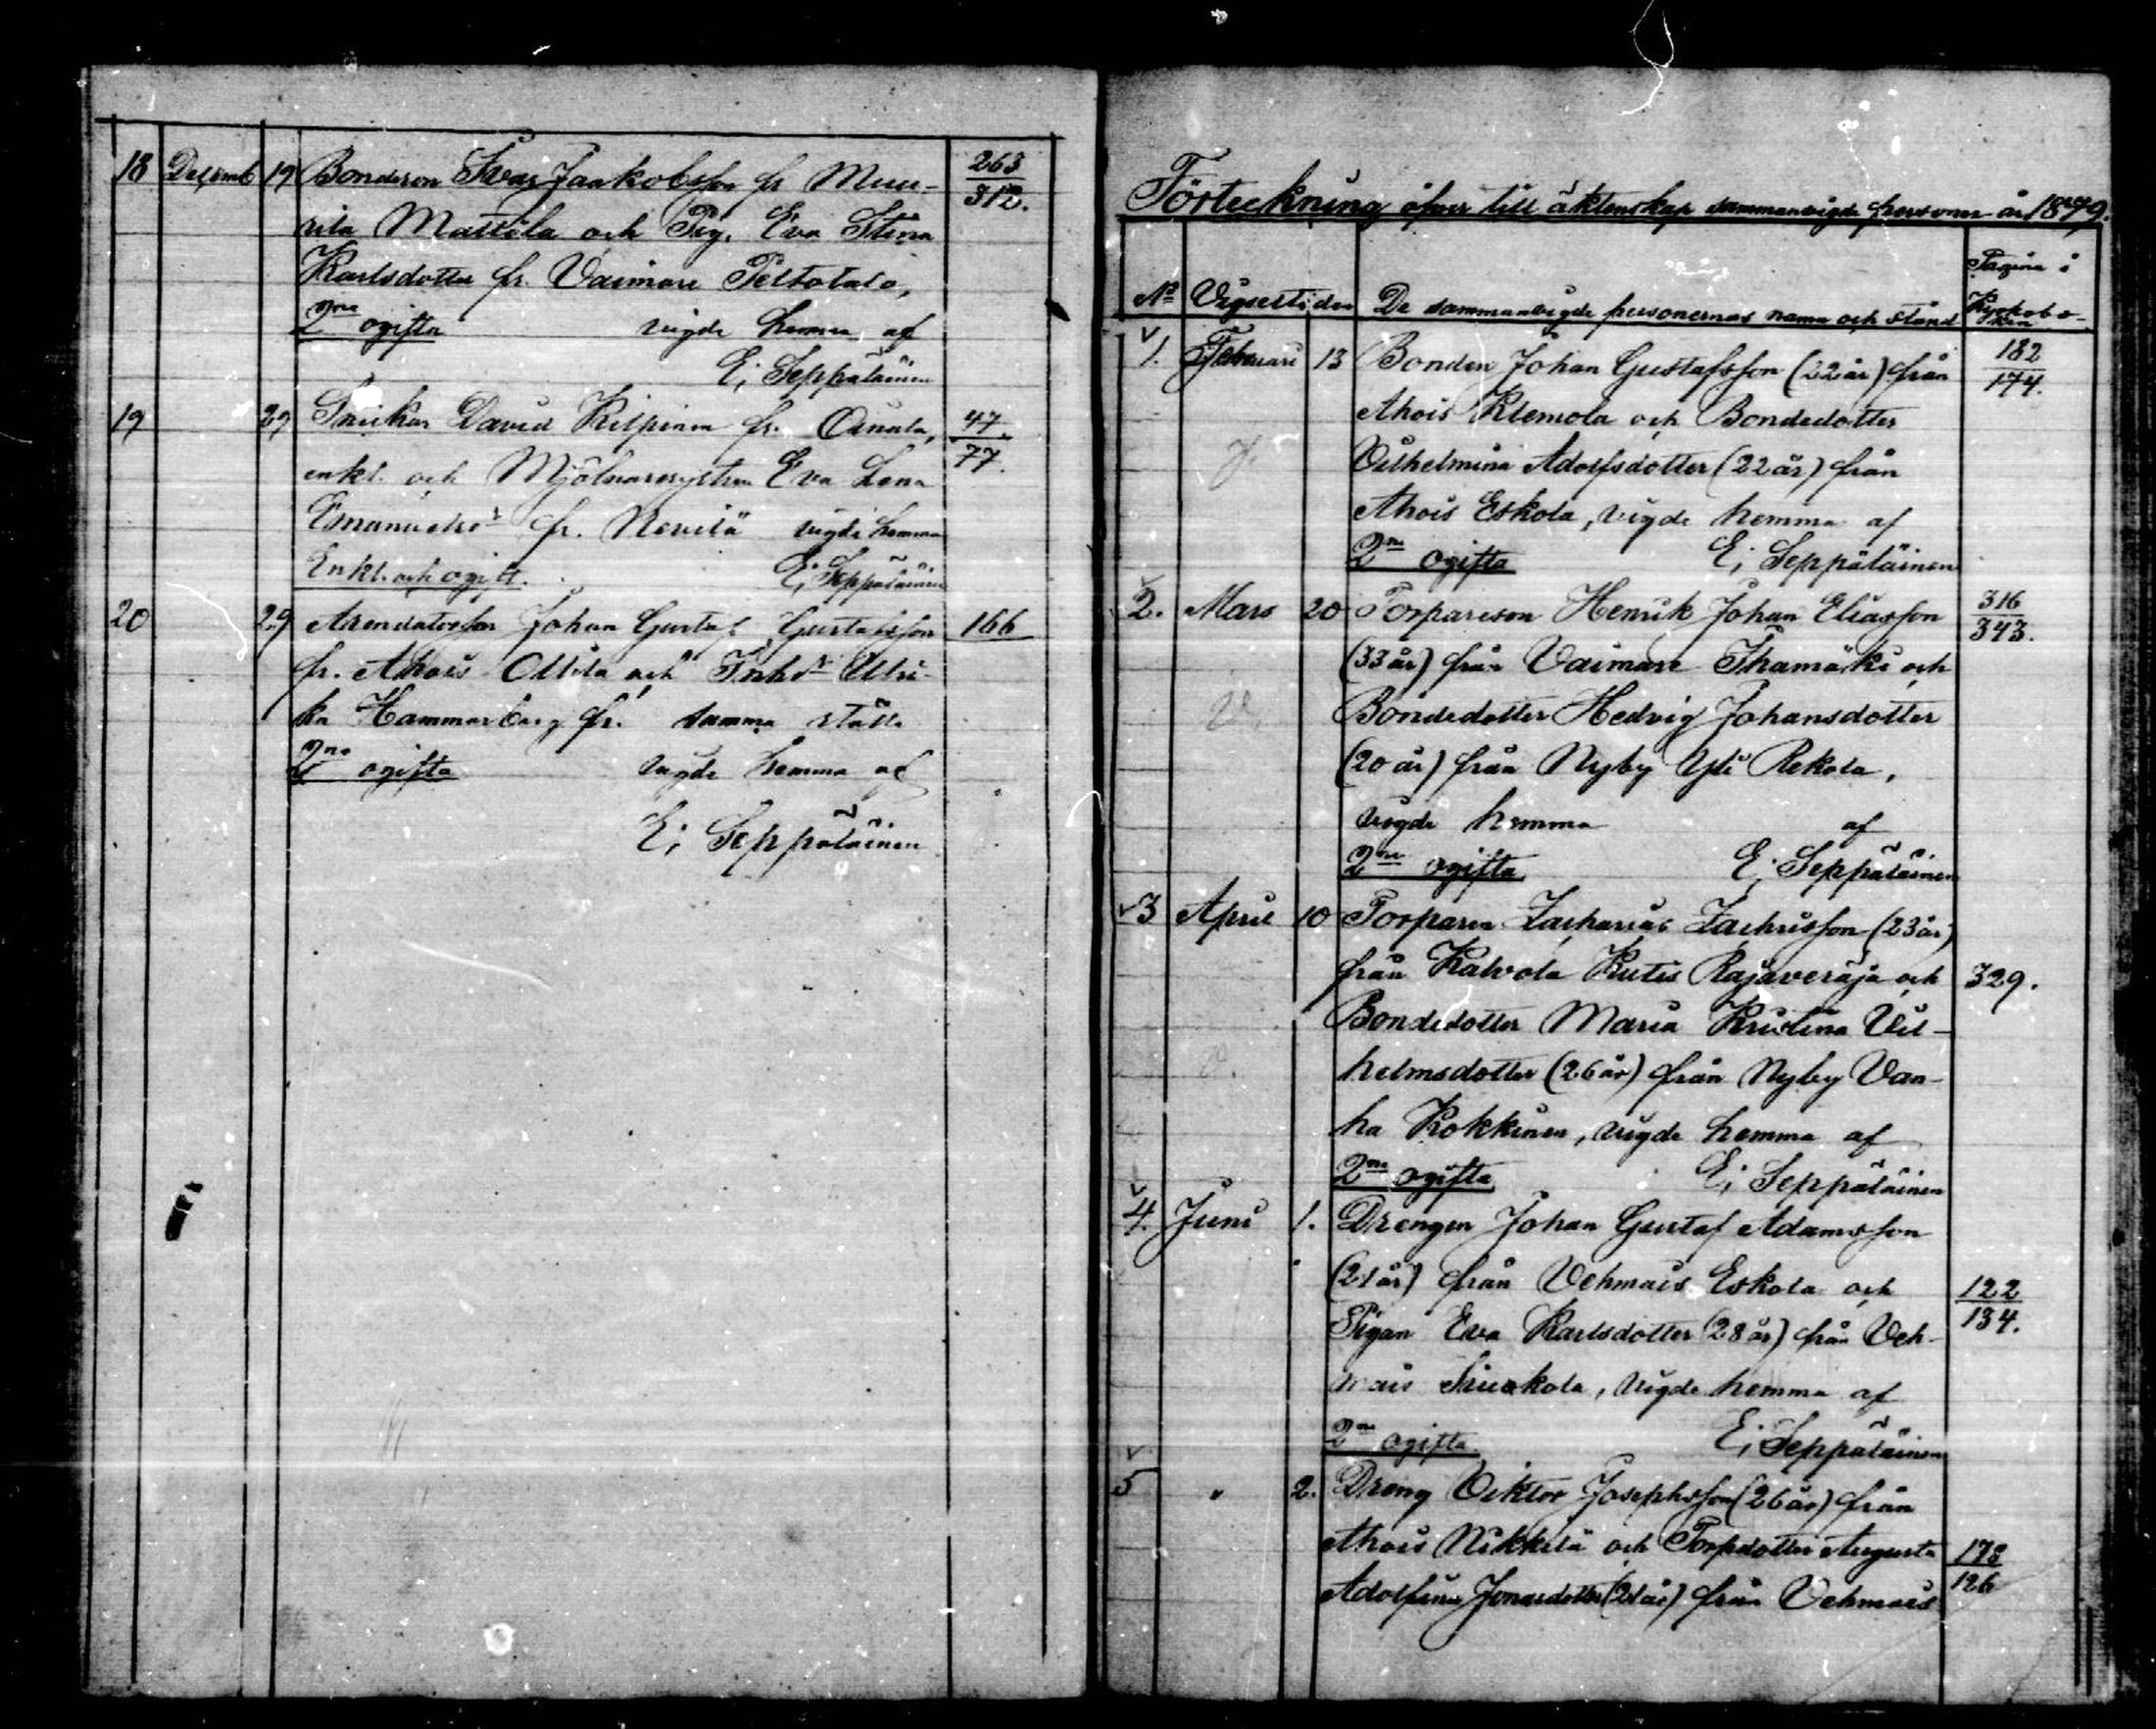 18 Decemb 19 Bondeson Ivar Jaakobsson fr Muu- 263
rila Mattila och Pig. Eva Stina 312.
Karlsdotter fr. Vaimare Peltotalo,
2ne ogifta vigde hemma af
E; Seppäläinen
19 29 Snickar David Kilpinen fr. Ounola, 47.
enkl. och Mjölnaresystern Eva Lena 77.
Emanuelsdr fr. Nevilä vigde hemma
Enkl. och ogift. E; Seppäläinen
20 29 Arendatorsson Johan Gustaf Gustafsson 166
fr. Ahois Ottila och Inhdr Ulri-
ka Hammarberg fr. samma ställe
2ne ogifta vigde hemma af
E; Seppäläinen
Förteckning öfver till äktenskap sammanvigde personer år 1879.
No Vigseltiden De sammanvigde personernas namn och stånd Pagina i Kyrkobo-
ken
1. Februari 13 Bonden Johan Gustafsson (22 år) från 182
Ahois Klemola och Bondedotter 174.
Vilhelmina Adolfsdotter (22 år) från
Ahois Eskola, vigde hemma af
2ne ogifta E; Seppäläinen
2. Mars 20 Torpareson Henrik Johan Eliasson 316
(33 år) från Vaimare Ihamäki och 343.
Bondedotter Hedvig Johansdotter
(20 år) från Nyby Yli Rekola,
vigde hemma af
2ne ogifta E; Seppäläinen
3 April 10 Torparen Zacharias Zachrisson (23 år)
från Kalvola Kutis Rajaveräjä och 329.
Bondedotter Maria Kristina Vil-
helmsdotter (26 år) från Nyby Van-
ha Kokkinen, vigde hemma af
2ne ogifta E; Seppäläinen
4. Juni 1. Drengen Johan Gustaf Adamsson
(21 år) från Vehmais Eskola och 122
Pigan Eva Karlsdotter (28 år) från Veh- 134.
mais, vigde hemma af
2ne ogifta E; Seppäläinen
5 " 2. Dreng Viktor Josephsson (26 år) från
Ahois Nikkilä och Torpdotter Augusta 178
Adolfina Jonasdotter (21 år) från Vehmais 126